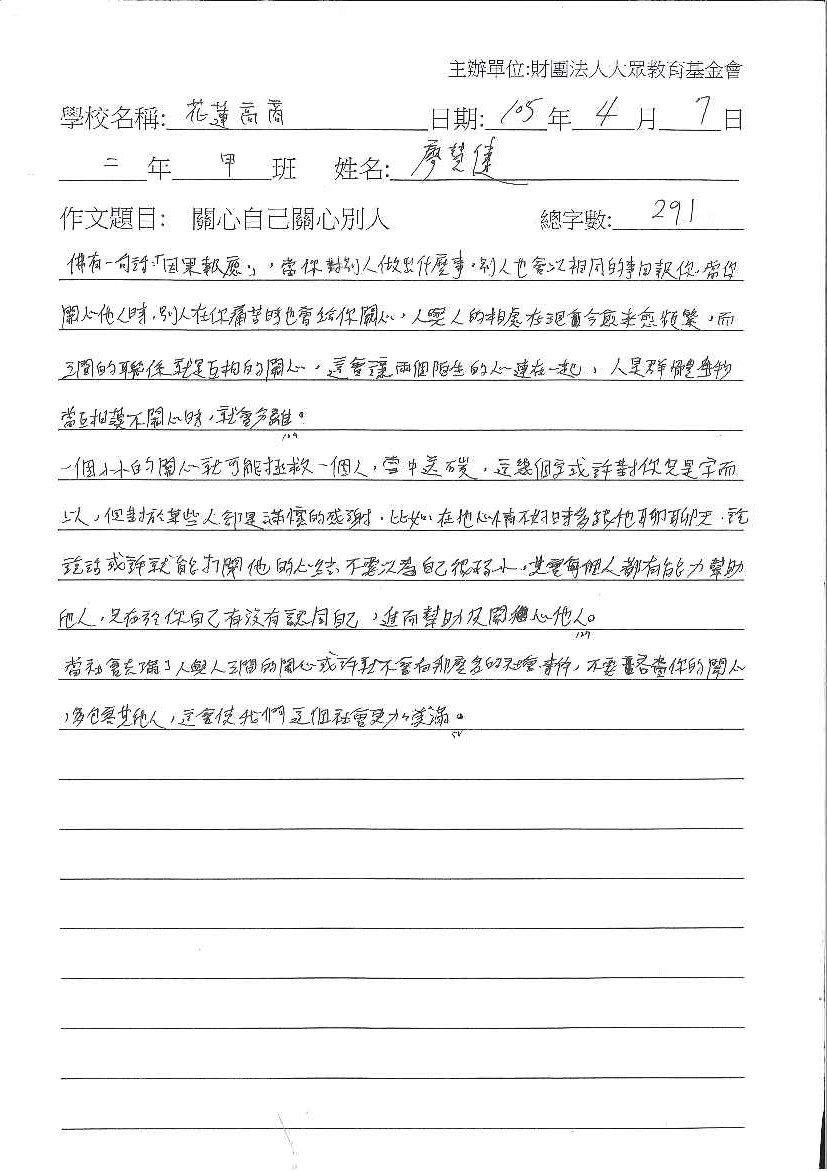 主辦單位:財團法人大眾教育基金會
學校名稱: 花蓮高商 日期: 105 年 4 月 7 日
二 年 甲 班 姓名: 廖慧健
作文題目: 關心自己關心別人 總字數: 291
佛有一句話「因果報應」，當你對別人做出什麼事，別人也會以相同的事回報你，當你
關心他人時，別人在你痛苦時也會給你關心，人與人的相處在現今愈來愈頻繁，而
之間的聯係就是互相的關心，這會讓兩個陌生的心連在一起，人是群體動物
當互相漠不關心時，就會分離。
109
一個小小的關心就可能拯救一個人，雪中送碳，這幾個字或許對你只是字而
以，但對於某些人卻是滿懷的感謝，比如在他心情不好時多跟他聊聊天，說
說話或許就能打開他的心結，不要以為自己很弱小，其實每個人都有能力幫助
他人，只在於你自己有沒有認同自己，進而幫助及關心他人。
129
當社會充滿了人與人之間的關心或許就不會有那麼多的社會事件，不要吝嗇你的關心
，多包容其他人，這會使我們這個社會更加美滿。